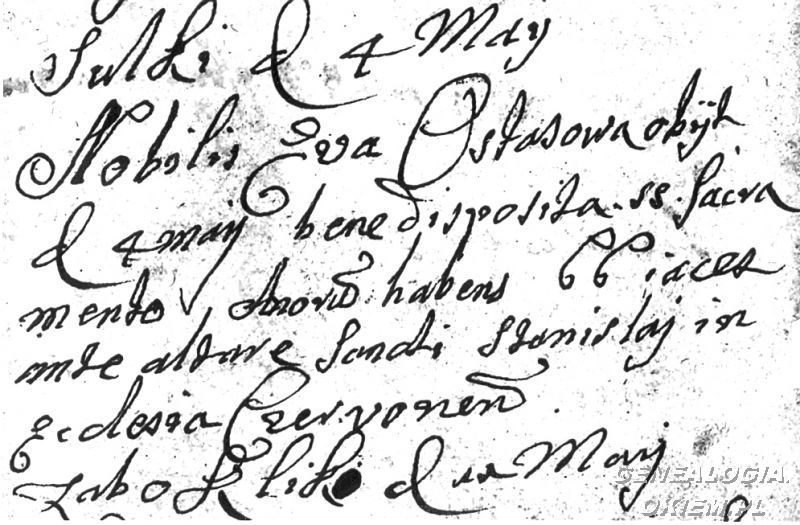 Sulki d 4 May
Nobilis Eva Ostasowa obijt
d 4 maij bene disposita ss. Sacra
mento Anorũ habens 66 iacet
ante altare Sancti Stanislaj in
Ecclesia Czervonen̄.
Zabokliki d Maij
GENEALOGIA.
OKIEM.PL